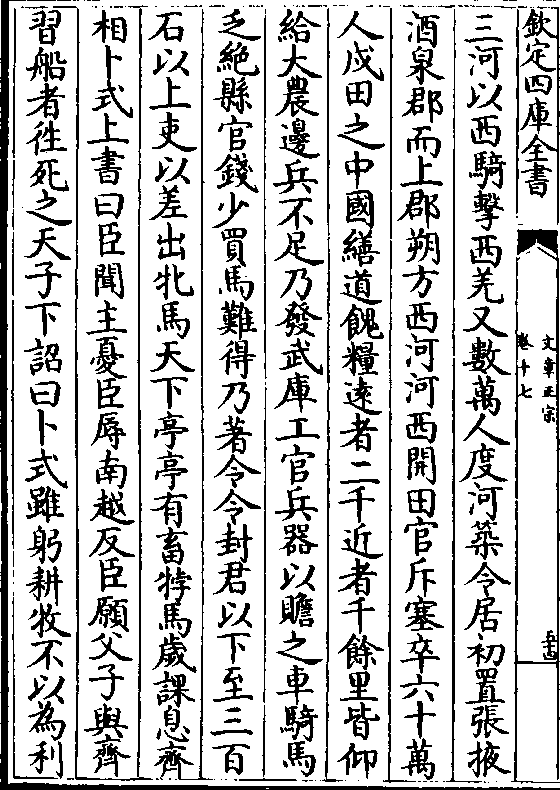 欽定四庫全書
文章正宗
卷十七
三河以西騎擊西羌又數萬人度河築令居初置張掖
酒泉郡而上郡朔方西河河西開田官斥塞卒六十萬
人戍田之中國繕道餽糧逺者二千近者千餘里皆仰
給大農邊兵不足乃發武庫工官兵器以贍之車騎馬
乏絕縣官錢少買馬難得乃著令令封君以下至三百
石以上吏以差出牝馬天下亭亭有畜牸馬歲課息齊
相卜式上書曰臣聞主憂臣辱南越反臣願父子與齊
習船者徃死之天子下詔曰卜式雖躬耕牧不以為利